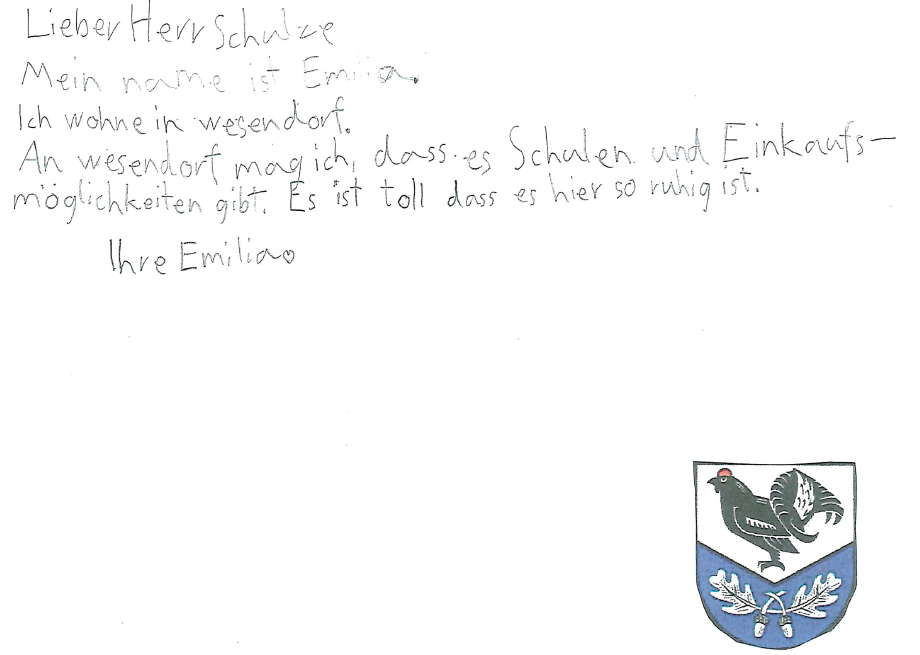 Lieber Herr Schulze
Mein name ist Emilia.
Ich wohne in wesendorf.
An wesendorf mag ich, dass es Schulen und Einkaufs-
möglichkeiten gibt. Es ist toll dass es hier so ruhig ist.
Ihre Emilia